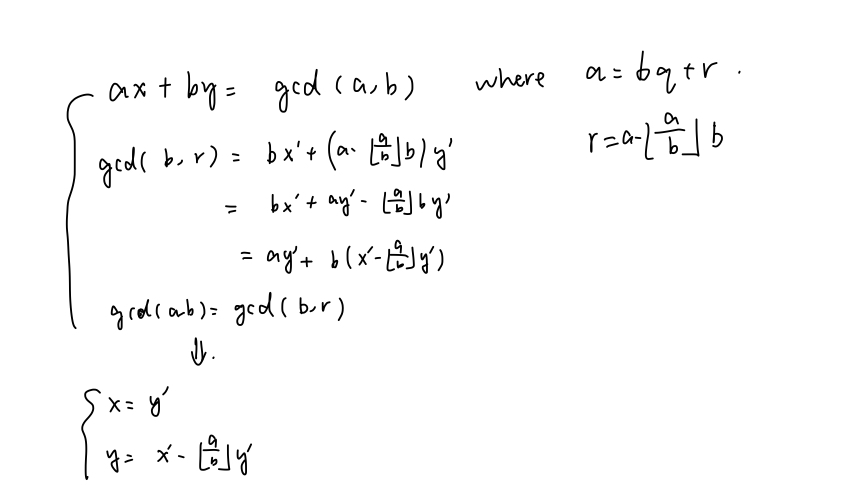 ax + by = gcd(a,b) where a = bq + r.
r = a - ⌊a/b⌋ b
gcd(b,r) = bx' + (a - ⌊a/b⌋b) y'
= bx' + ay' - ⌊a/b⌋ b y'
= ay' + b(x' - ⌊a/b⌋ y')
gcd(a,b) = gcd(b,r)
⇓.
x = y'
y = x' - ⌊a/b⌋ y'